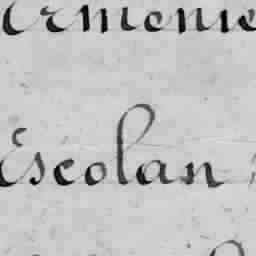 Armenie
Escolan